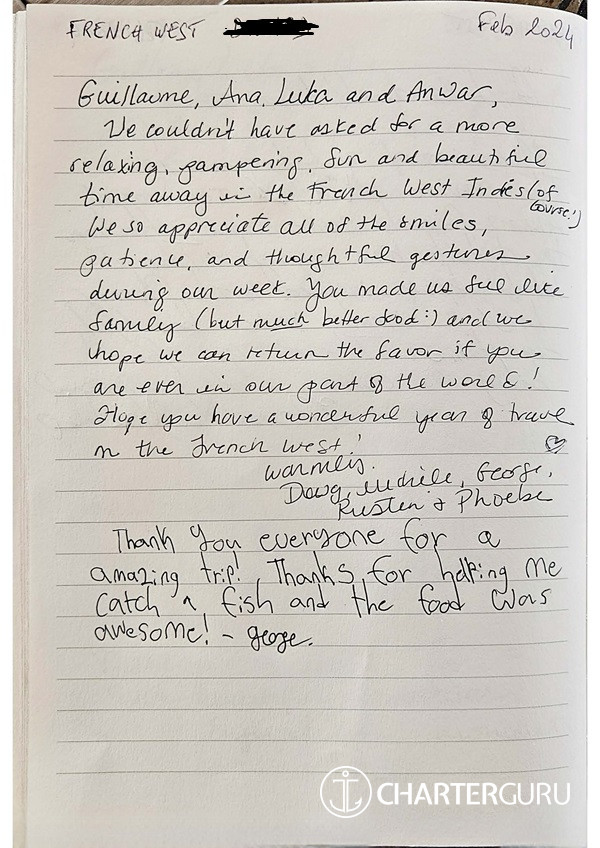 FRENCH WEST
Feb 2024
Guillaume, Ana, Luka and Anwar,
We couldn't have asked for a more
relaxing, pampering, fun and beautiful
time away in the French West Indies (of
course!)
We so appreciate all of the smiles,
patience, and thoughtful gestures
during our week. You made us feel like
family (but much better food :) and we
hope we can return the favor if you
are ever in our part of the world!
Hope you have a wonderful year of travel
in the French West!
Warmly,
Doug, Michele, George,
& Phoebe
Thank you everyone for a
amazing trip! Thanks for helping me
catch a fish and the food was
awesome! - george.
CHARTERGURU